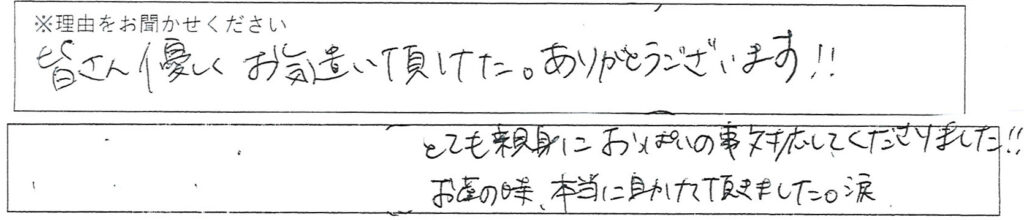 ※理由をお聞かせください
皆さん優しくお気遣い頂けた。ありがとうございます!!
とても親身におっぱいの事対応してくださりました!!
お産の時、本当に助けて頂きました。涙